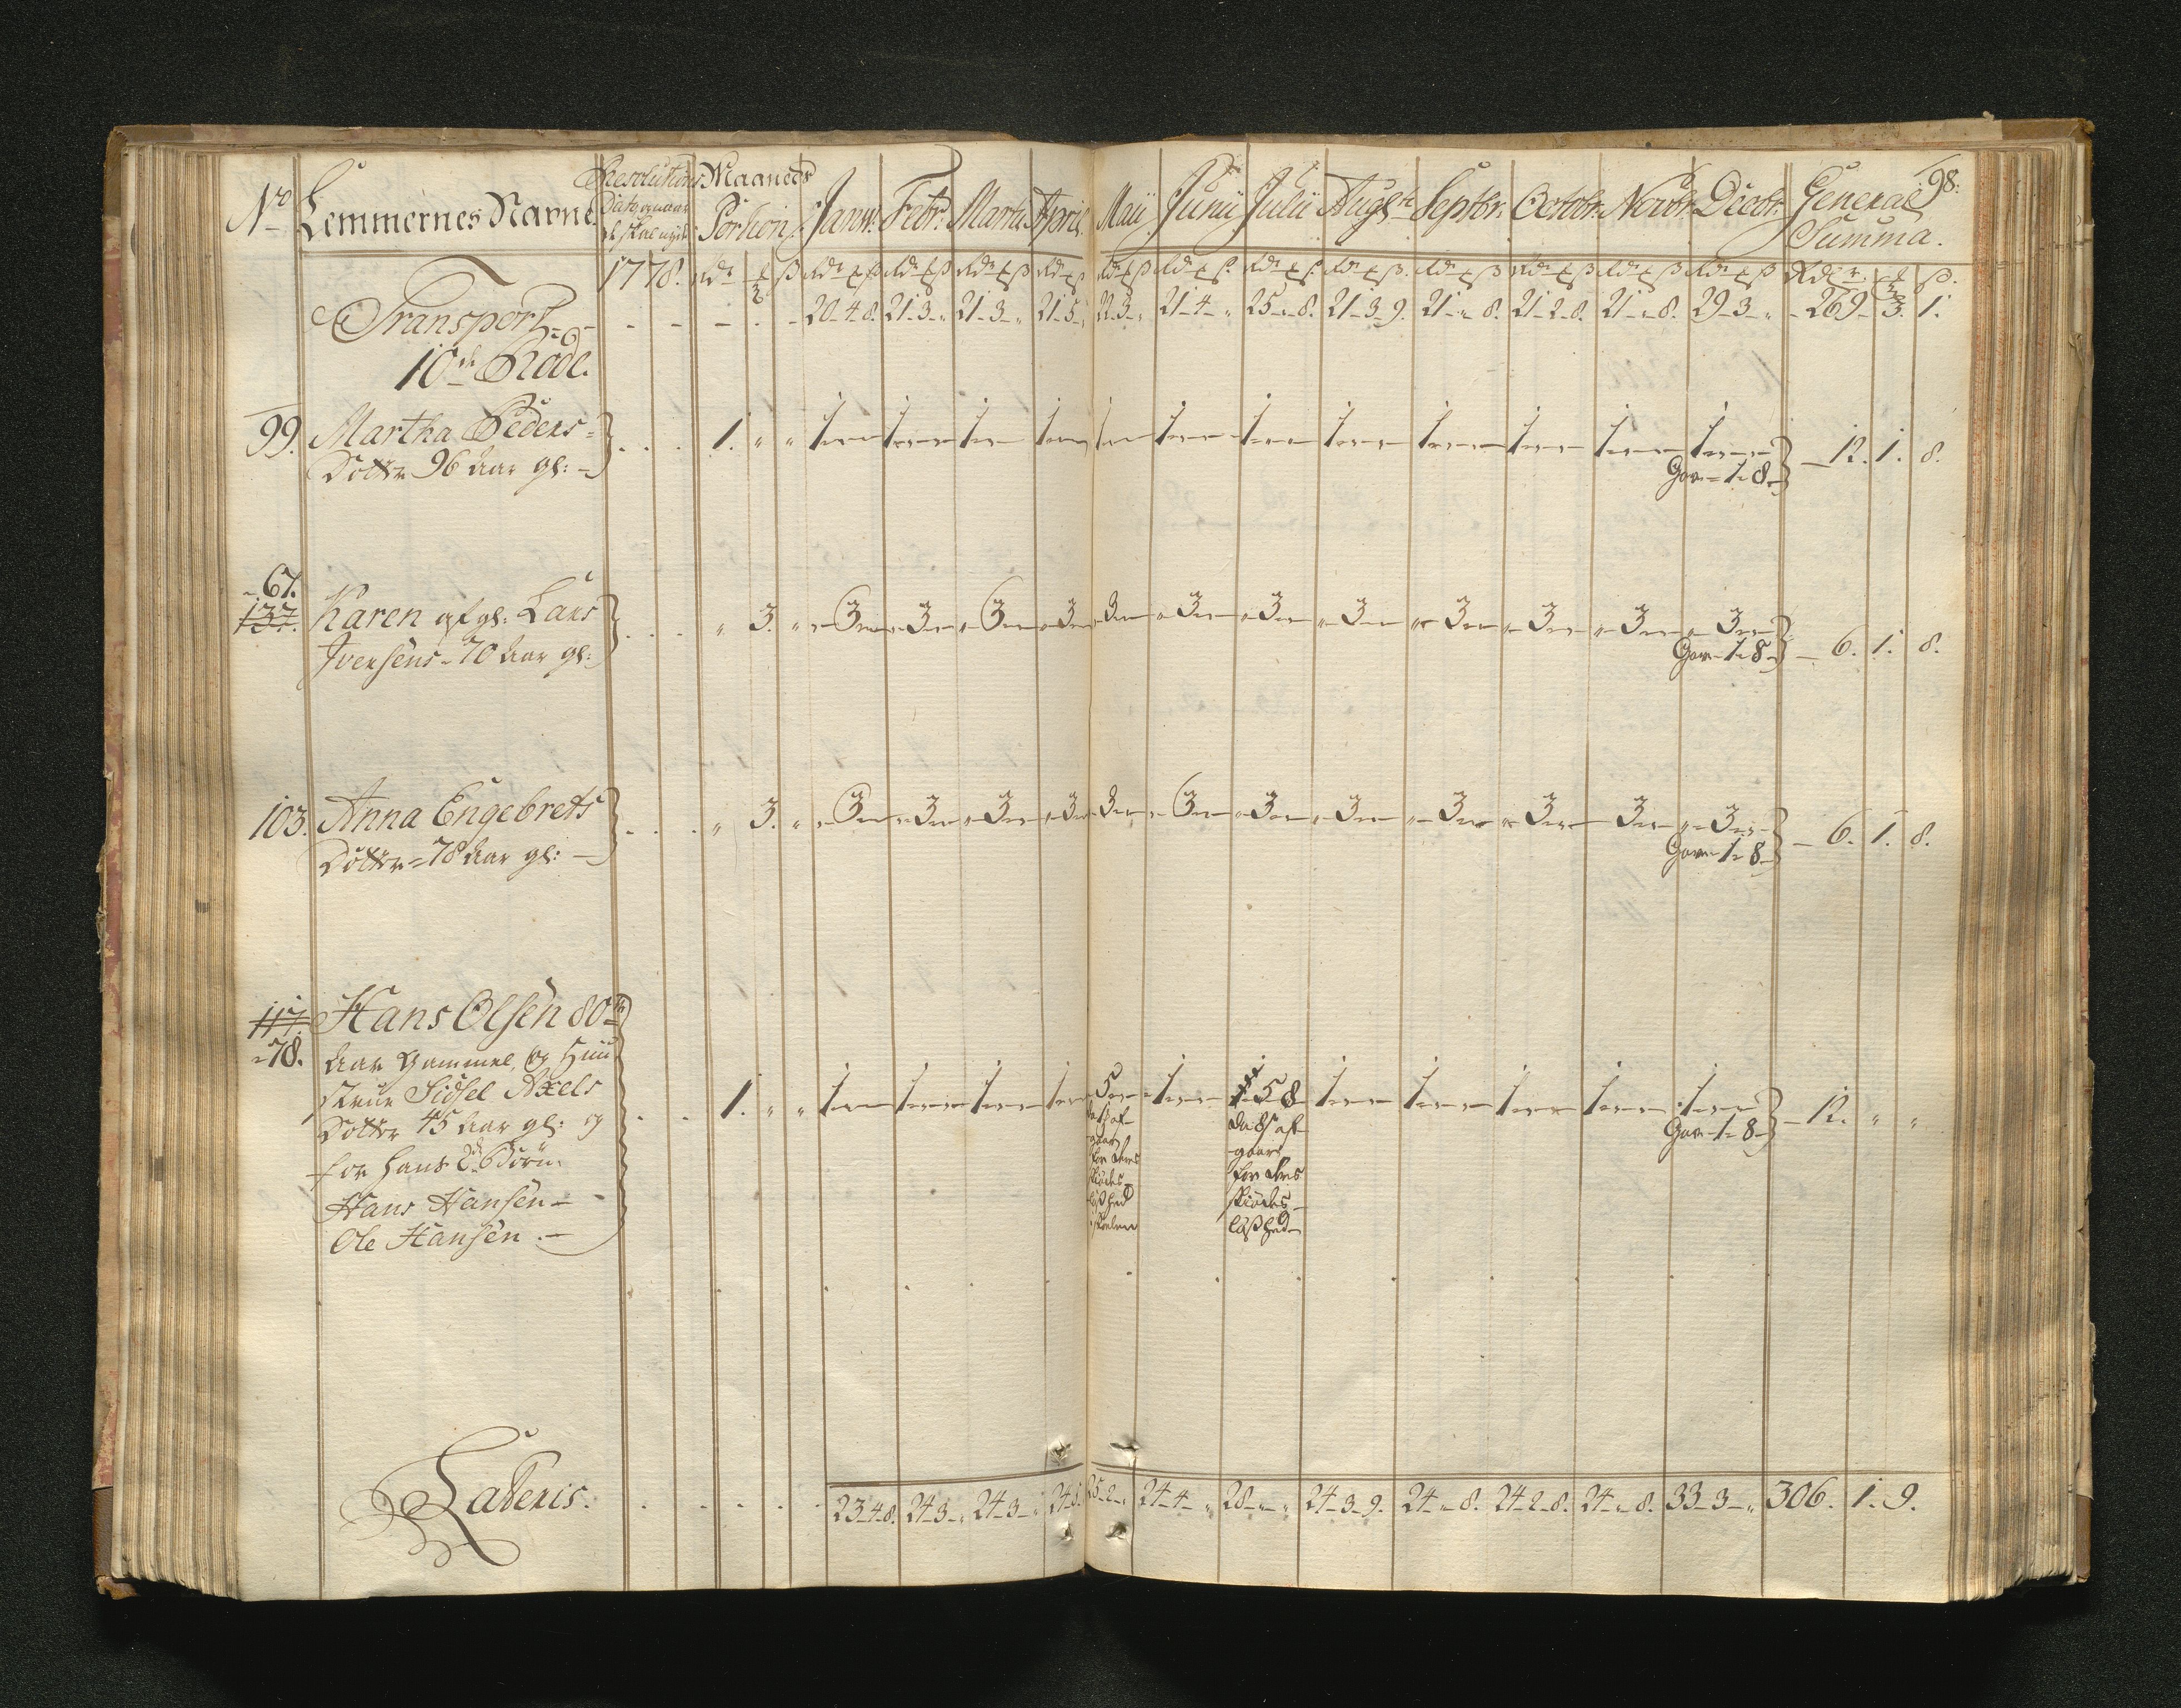 98.
No Lemmernes Navne. Resolutions Dato Maaneds Portion. Janu: Febr: Marti: April: Maii Junii Julii Augst: Septbr: Octobr: Novbr: Decbr: General Summa.
1778. Rdr ß Rdlr ß
Transport 20-4-8. 21-3-„ 21-3-„ 21-5-„ 22-3-„ 21-4-„ 25-„-8. 21-3-9. 21-„-8. 21-2-8. 21-„-8. 29-3-„ 269-3. 1.
10de Rode.
99. Martha Peders= 1. „ „ 1 1 1 1 1 1 1 1 1 1 1 1
Dotter 96 Aar gl: Gav-1-8 12. 1. 8.
67.
137. Karen afgl: Lars „ 3. „ 3 3 3 3 3 3 3 3 3 3 3 3
Iversens 70 Aar gl: Gav-1-8 6. 1. 8.
103. Anna Engebrets „ 3. „ 3 3 3 3 3 3 3 3 3 3 3 3
Dotter 78 Aar gl: Gav-1-8 6. 1. 8.
117. Hans Olsen 80
78. Aar Gammel, og Huu
strue Sidsel Axels 1. „ „ 1 1 1 1 5 1 1 5 8 1 1 1 1 1
Dotter 45 Aar gl: og Gav-1-8 12. „ „
for hans 2de Børn
Hans Hansen
Ole Hansen
afgaar
for deres
skiødes
løshed
i skolen
da 8ß af
gaar
for deres
skiødes
løshed
Lateris. 23-4-8. 24-3-„ 24-3-„ 24-5. 25-2-„ 24-4-„ 28-„-„ 24-3-9. 24-„-8. 24-2-8. 24-„-8. 33-3-„ 306. 1. 9.